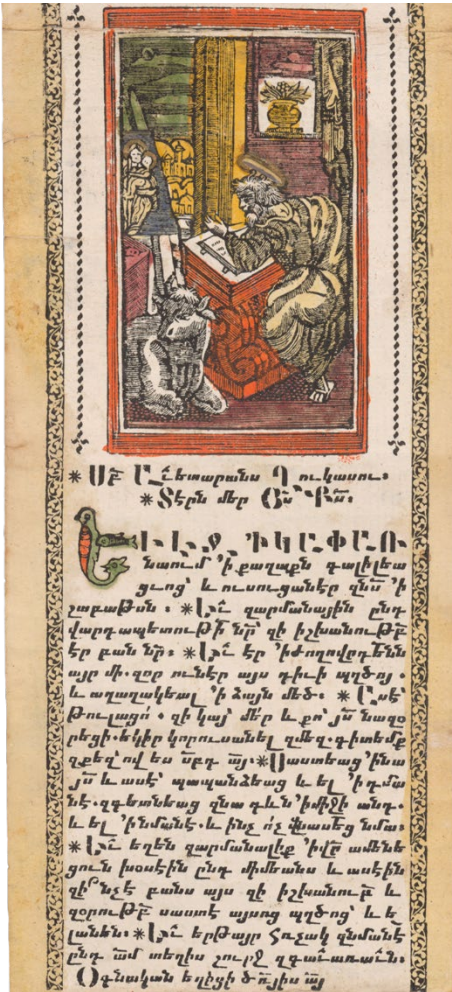 ✳ Սբ՟ Աւետարանս Ղուկասու։
✳Տէրն մեր Յս՟ Քս՟։
ԵՒ․Է․Ջ․ ՚ԻԿԱՓԱՌ
նաում՝ ՚ի քաղաքն գալիլեա
ցւոց՝ և ուսուցանէր զնս՟ ՚ի
շաբաթսն ։ ✳Եւ՟ զարմանային ընդ
վարդապետութի՟ նր՟ զի իշխանութբ՟
էր բան նր՟։ ✳Եւ՟ էր ՚իժողովրդենն
այր մի․զօր ունէր այս դիւի պղծոյ․
և աղաղակեալ ՚ի ձայն մեծ։ ✳ Եւ ասէ՝
թուլացո՛ ․ զի կայ՝ մեր և քո՝ յս՟ նազօ
րեցի․եկիր կորուսանել զմեզ․գիտեմք
զքեզ՝ով ես սբդ՟ այ՟։✳Սաստեաց՝ինա
յս՟ և ասէ՝ պապանձեաց և ել ՚ի դմա
նէ․զգետնեաց զնա դևն ՚իմիջի անդ․
և ել ՚ինմանէ․և ինչ ո՛չ վնասեց նմա։
✳Եւ՟ եղեն զարմանալիք ՚իվր՟ ամենե
ցուն խօսէին ընդ միմեանս և ասէին
զի՞նչէ բանս այս զի իշխանութբ՟ և
զօրութբ՟ սաստէ այսոց պղծոց՝ և ե
լանեն։✳Եւ՟ երթայր հռչակ զնմանէ
ընդ ամ՟ տեղիս շուրջ զգաւառաւն։
Օգնական եղիցի ծռյիս այ՟